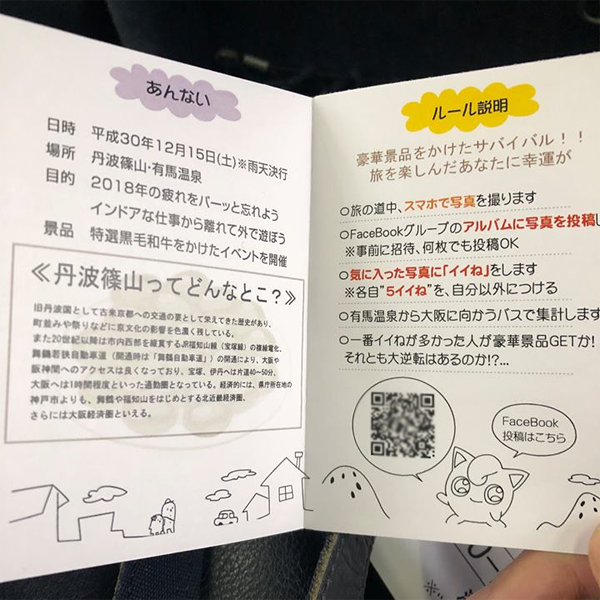 あんない
日時 平成30年12月15日(土)※雨天決行
場所 丹波篠山・有馬温泉
目的 2018年の疲れをパーッと忘れよう
インドアな仕事から離れて外で遊ぼう
景品 特選黒毛和牛をかけたイベントを開催
≪丹波篠山ってどんなとこ？≫
旧丹波国として古来京都への交通の要として栄えてきた歴史があり、
町並みや祭りなどに京文化の影響を色濃く残している。
また20世紀以降は市内西部を縦貫するJR福知山線（宝塚線）の複線電化、
舞鶴若狭自動車道（開通時は「舞鶴自動車道」）の開通により、大阪や
阪神間へのアクセスは良くなっており、宝塚、伊丹へは片道40～50分、
大阪へは1時間程度といった通勤圏となっている。経済的には、県庁所在地の
神戸市よりも、舞鶴や福知山をはじめとする北近畿経済圏、
さらには大阪経済圏といえる。
ルール説明
豪華景品をかけたサバイバル！！
旅を楽しんだあなたに幸運が
○旅の道中、スマホで写真を撮ります
○FaceBookグループのアルバムに写真を投稿し
※事前に招待、何枚でも投稿OK
○気に入った写真に「イイね」をします
※各自"5イイね"を、自分以外につける
○有馬温泉から大阪に向かうバスで集計します
○一番イイねが多かった人が豪華景品GETか！
それとも大逆転はあるのか!?...
FaceBook
投稿はこちら